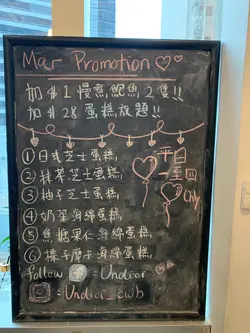 Mar Promotion
加 $1 慢煮鮑魚2隻!!
加 $28 蛋糕放題!!
① 日式芝士蛋糕
② 抹茶芝士蛋糕
③ 柚子芝士蛋糕
④ 奶茶海綿蛋糕
⑤ 焦糖果仁海綿蛋糕
⑥ 榛子摩卡海綿蛋糕
平日
一至四
Only
Follow : Undier
: Undioi_cwb